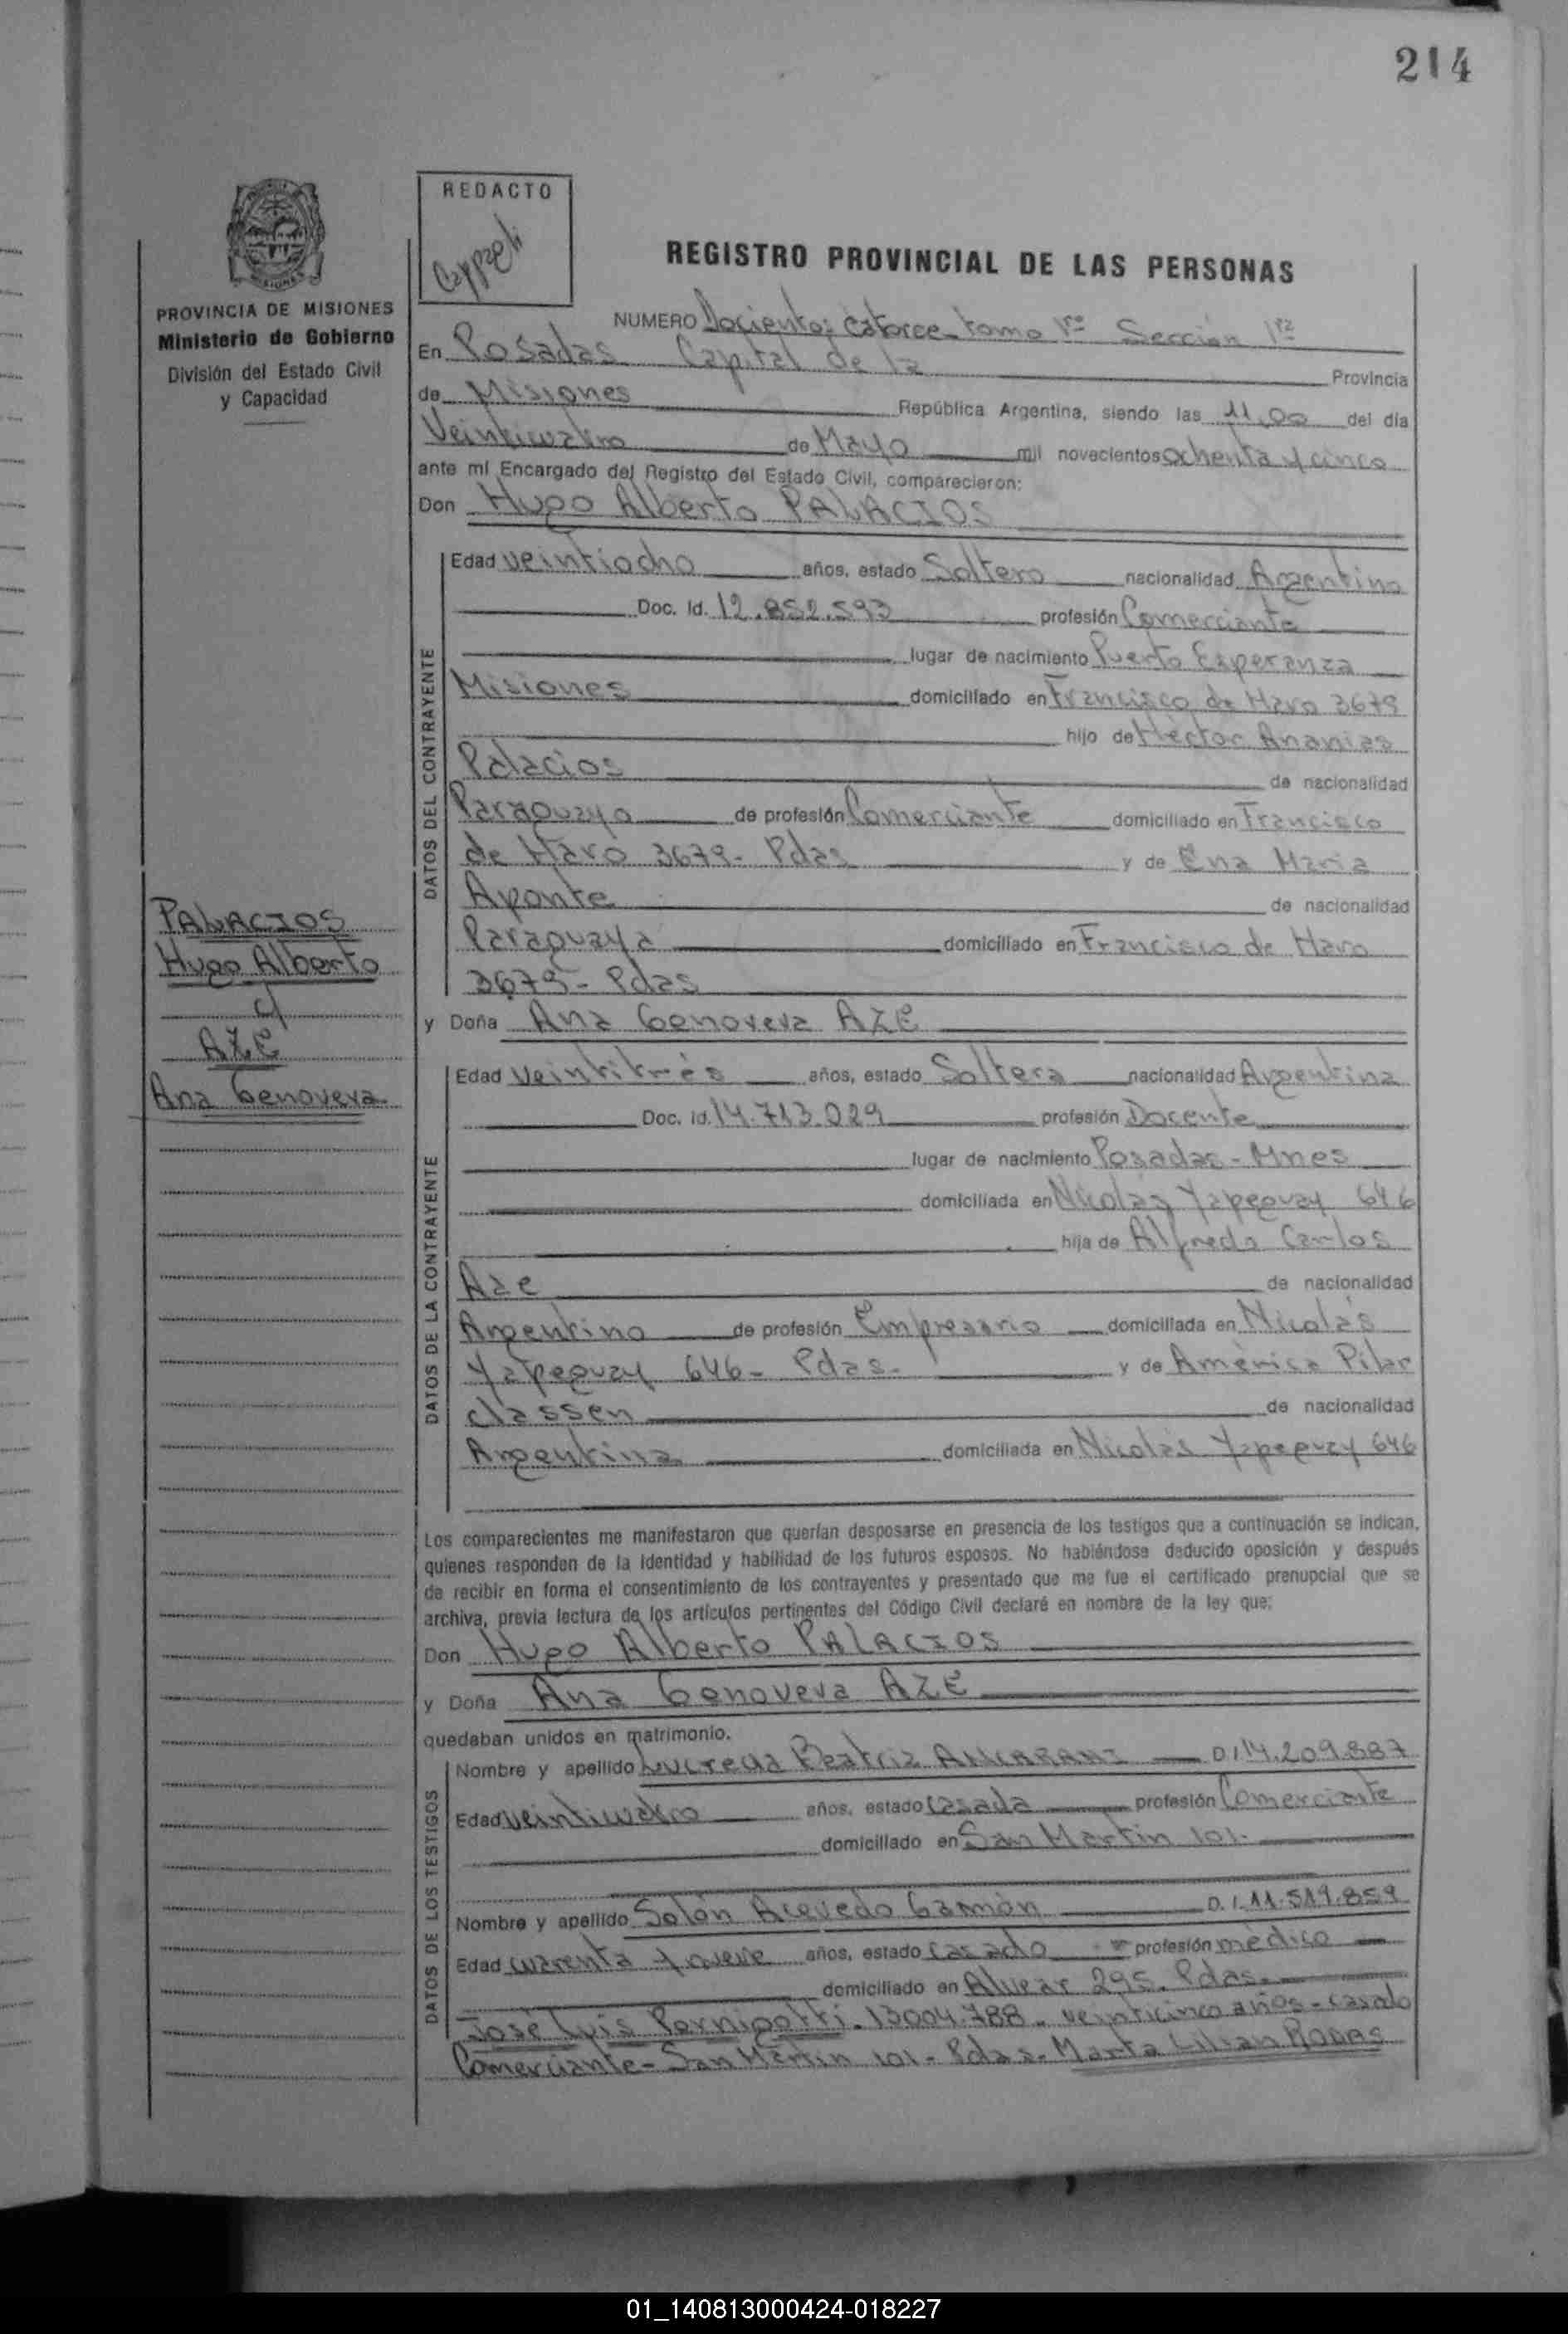 214
REDACTO
REGISTRO PROVINCIAL DE LAS PERSONAS
PROVINCIA DE MISIONES
Ministerio de Gobierno
División del Estado Civil
y Capacidad
NUMERO Docientos catorce tomo 1º Sección 1ra
En Posadas Capital de la Provincia
de Misiones República Argentina, siendo las 11,00 del día
Veinticuatro de Mayo mil novecientos ochenta y cinco
ante mí Encargado del Registro del Estado Civil, comparecieron:
Don Hugo Alberto PALACIOS
DATOS DEL CONTRAYENTE
Edad veintiocho años, estado Soltero nacionalidad Argentino
Doc. Id. 12.852.593 profesión Comerciante
lugar de nacimiento Puerto Esperanza
Misiones domiciliado en Francisco de Haro 3679
hijo de Héctor Ananias
Palacios de nacionalidad
Paraguayo de profesión Comerciante domiciliado en Francisco
de Haro 3679- Pdas y de Ena Maria
Aponte de nacionalidad
Paraguaya domiciliado en Francisco de Haro
3679- Pdas
PALACIOS
Hugo Alberto
c/
AZE
Ana Genoveva
y Doña Ana Genoveva AZE
DATOS DE LA CONTRAYENTE
Edad Veintitrés años, estado Soltera nacionalidad Argentina
Doc. Id. 14.713.029 profesión Docente
lugar de nacimiento Posadas - Mnes
domiciliada en Nicolás Yapeguay 646
hija de Alfredo Carlos
Aze de nacionalidad
Argentino de profesión Empresario domiciliada en Nicolás
Yapeguay 646- Pdas- y de América Pilar
classen de nacionalidad
Argentina domiciliada en Nicolás Yapeguay 646
Los comparecientes me manifestaron que querían desposarse en presencia de los testigos que a continuación se indican,
quienes responden de la identidad y habilidad de los futuros esposos. No habiéndose deducido oposición y después
de recibir en forma el consentimiento de los contrayentes y presentado que me fue el certificado prenupcial que se
archiva, previa lectura de los artículos pertinentes del Código Civil declaré en nombre de la ley que:
Don Hugo Alberto PALACIOS
y Doña Ana Genoveva AZE
quedaban unidos en matrimonio.
DATOS DE LOS TESTIGOS
Nombre y apellido Lucrecia Beatriz D.I 14.209.887
Edad veinticuatro años, estado casada profesión Comerciante
domiciliado en San Martin 101-
Nombre y apellido Solón Acevedo Gamón D.I. 11.519.859
Edad cuarenta y nueve años, estado casado profesión médico
domiciliado en Alvear 295. Pdas.
José Luis Pernigotti. 13004.788 - veinticinco años - casado
Comerciante - San Martin 101 - Pdas. Marta Lilian RODAS
01_140813000424-018227